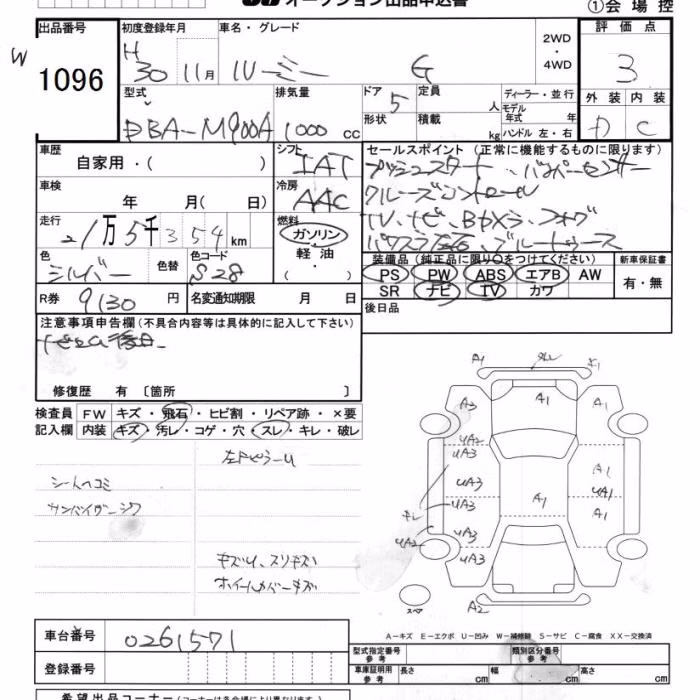 オークション出品申込書
①会場控
出品番号 初度登録年月 車名・グレード 2WD・4WD 評価点
W 1096 H 30 11月 ルーミー G 3
型式 排気量 ドア 定員 ディーラー・並行 外装 内装
DBA-M900A 1000 cc 5 人 モデル年式 年 D C
形状 積載 kg ハンドル 左・右
車歴 シフト セールスポイント (正常に機能するものに限ります)
自家用・( ) IAT プッシュスタート、バンパーセンサー
車検 冷房 クルーズコントロール
年 月( 日) AAC TV、ナビ、Bカメラ、フォグ
走行 燃料 パワスラ左右、ブルートゥース
2 1万5千354km ガソリン・軽油・( )
装備品 (純正品に限り○をつけてください) 新車保証書
色 色替 色コード PS PW ABS エアB AW 有・無
シルバー S28 SR ナビ TV カワ
R券 9130 円 名変通知期限 月 日 後日品
注意事項申告欄 (不具合内容等は具体的に記入して下さい)
修復歴 有 〔箇所 〕
検査員 FW キズ・飛石・ヒビ割・リペア跡・×要
記入欄 内装 キズ・汚レ・コゲ・穴・スレ・キレ・破レ
シートヘコミ
サンバイザージワ
キズU、スリキズ
ホイールカバーキズ
A1
A3 A1
UA2
UA3 A1
UA3 UA1
UA3 A1 A1
UA3
UA2
UA3
スペア A2
A―キズ E―エクボ U―凹み W―補修跡 S―サビ C―腐食 XX―交換済
車台番号 0261571
型式指定番号 参考 類別区分番号 参考
登録番号
車庫証明用 参考 長さ cm 幅 cm 高さ cm
希望出品コーナー